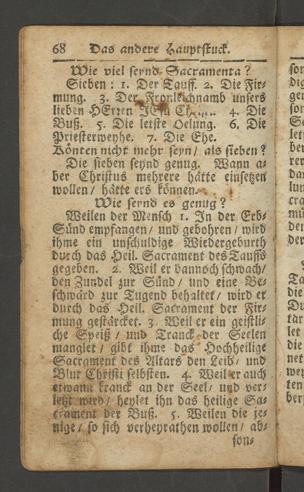 68 Das andere Hauptstuck.
Wie viel seynd Sacramenta?
Sieben: 1. Der Tauff. 2. Die Fir-
mung. 3. Der Fronleichnamb unsers
lieben HErrn JEsu 4. Die
Buß. 5. Die letste Oelung. 6. Die
Priesterweyhe. 7. Die Ehe.
Könten nicht mehr seyn / als sieben?
Die sieben seynd genug. Wann a-
ber Christus mehrere hätte einsetzen
wollen / hätte ers können.
Wie seynd es genug?
Weilen der Mensch 1. In der Erb-
Sünd empfangen / und gebohren / wird
ihme ein unschuldige Wiedergeburth
durch das Heil. Sacrament des Tauffs
gegeben. 2. Weil er dannoch schwach /
den Zundel zur Sünd / und eine Be-
schwärd zur Tugend behaltet / wird er
durch das Heil. Sacrament der Fir-
mung gestärcket. 3. Weil er ein geistli-
che Speiß / und Tranck der Seelen
manglet / gibt ihme das Hochheilige
Sacrament des Altars den Leib / und
Blut Christi selbsten. 4. Weil er auch
etwann kranck an der Seel / und ver-
letzt wird / heylet ihn das heilige Sa-
crament der Buß. 5. Weilen die je-
nige / so sich verheyrathen wollen / ab-
son-